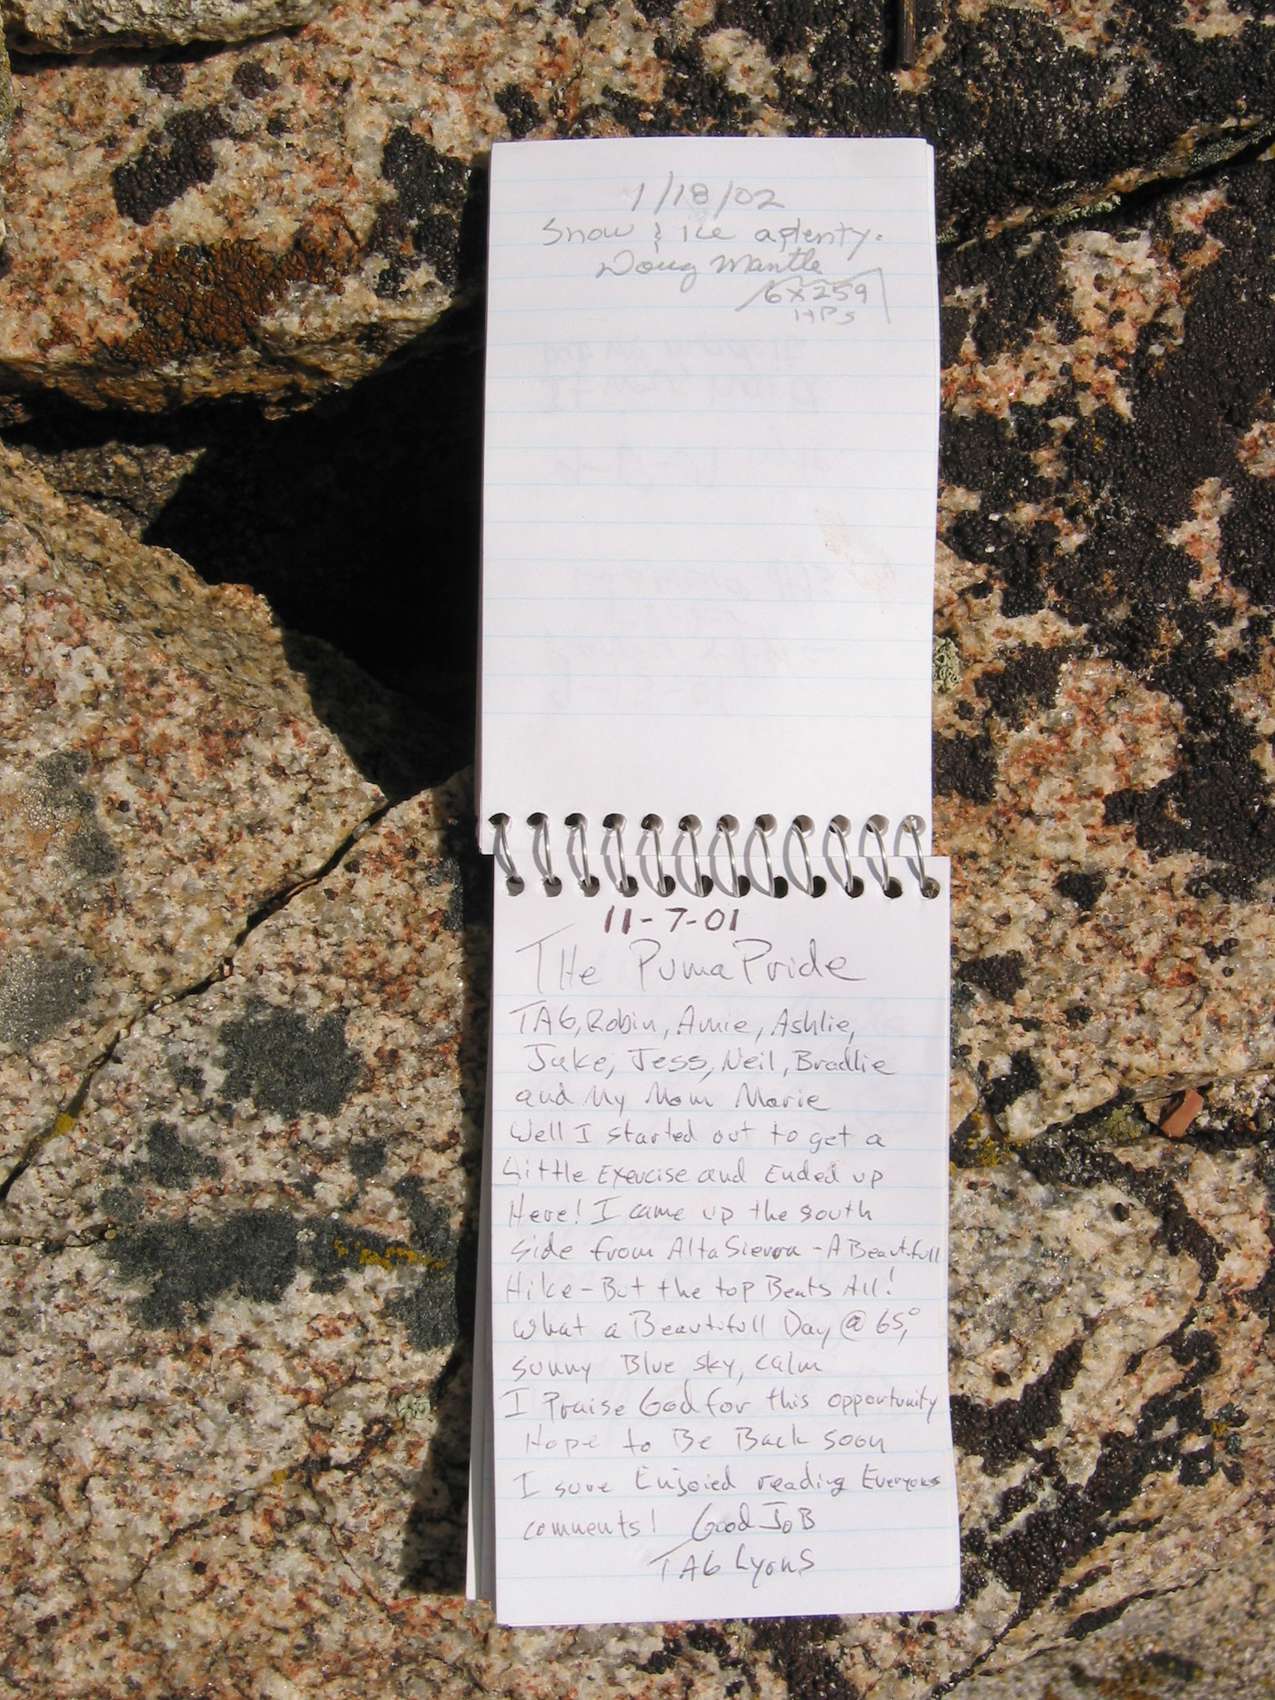 1/18/02
Snow & ice aplenty.
Doug Mantle
6x259
HPs
11-7-01
THe Puma Pride
TAG, Robin, Amie, Ashlie,
Jake, Jess, Neil, Bradlie
and My Mom Marie
Well I started out to get a
Little Exercise and Ended up
Here! I came up the south
side from Alta Sierra - A Beautifull
Hike - But the top Beats All!
What a Beautifull Day @ 65°,
sunny Blue sky, calm
I Praise God for this opportunity
Hope to Be Back soon
I sure Enjoied reading Everyones
comments! Good JoB
TAG Lyons